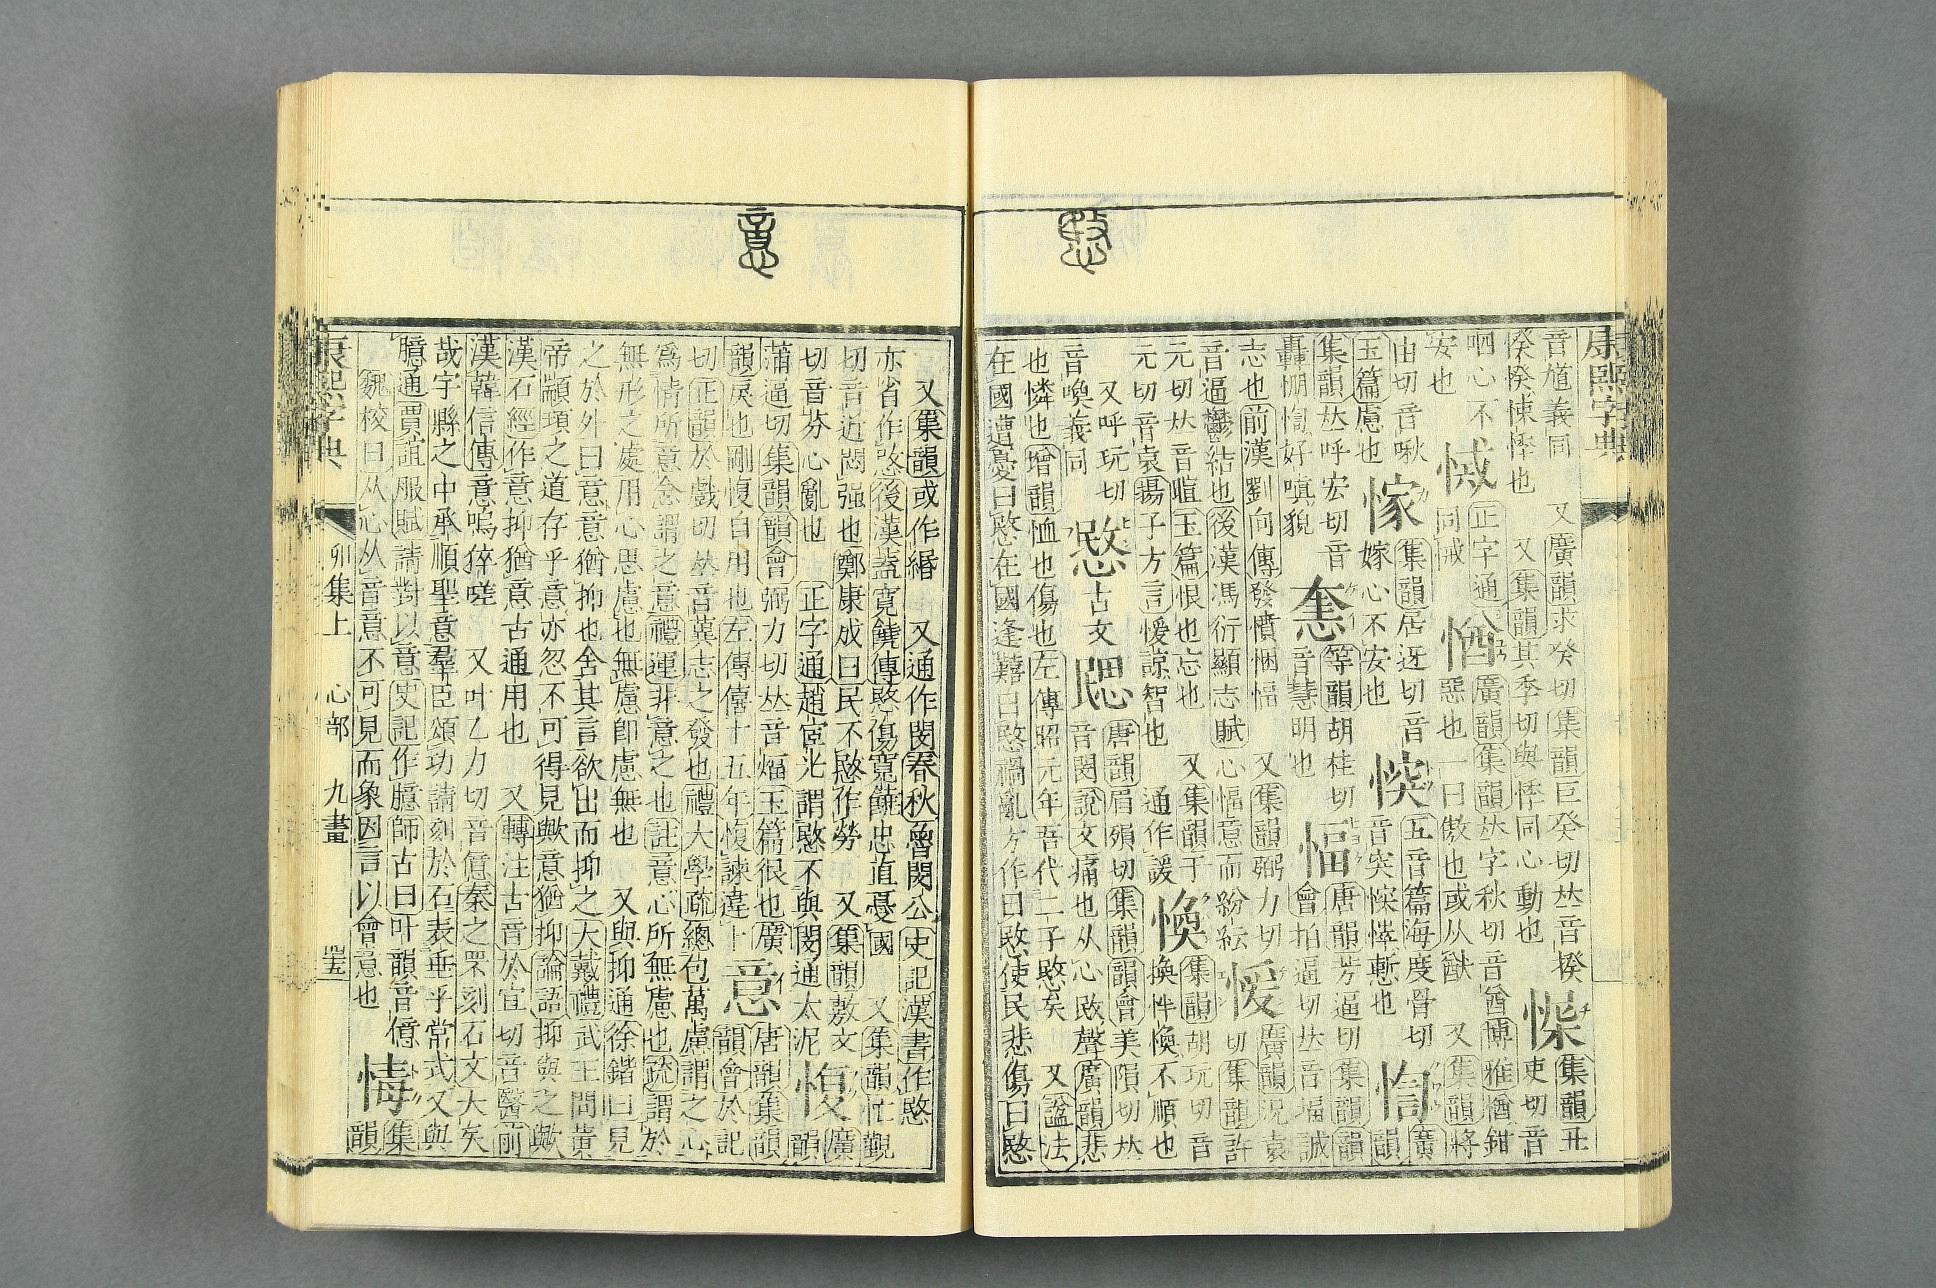 康熙字典
音馗義同 又廣韻求癸切集韻巨癸切𠀤音揆
癸悸悚慳也 又集韻其季切與悸同心動也 㦅集韻丑
吏切音呬心不安也
惐正字通同惐
愐
㥢廣韻集韻𠀤字秋切音酋博雅㥢鉗惡也一曰傲也或从猷 又集韻將由切音啾
玉篇慮也
㥛集韻居迓切音嫁心不安也
㥨五音篇海度骨切音突㥨悻慙也
㤨廣韻集韻𠀤呼宏切音轟恲㤨好嗔貌
㥣等韻胡桂切音慧明也
愊唐韻芳逼切集韻韻會拍逼切𠀤音堛誠志也前漢劉向傳發憤悃愊 又集韻弼力切音逼鬱結也後漢馮衍顯志賦心愊意而紛紜
愋廣韻況袁切集韻許元切𠀤音愃玉篇恨也忘也 又集韻于元切音袁揚子方言愋諒智也 通作諼
愌集韻胡玩切音換伴愌不順也 又呼玩切音喚義同
愍
愍古文𢞞唐韻眉殞切集韻韻會美隕切𠀤音閔說文痛也从心敃聲廣韻悲也憐也增韻恤也傷也左傳昭元年吾代二子愍矣 又諡法在國遭憂曰愍在國逢囏曰愍禍亂方作曰愍使民悲傷曰愍
又集韻或作緡 又通作閔春秋魯閔公史記漢書作愍
亦省作㥸後漢蓋寬饒傳愍傷寬饒忠直憂國 又集韻忙覲
切音近悶强也鄭康成曰民不愍作勞 又集韻敷文
切音芬心亂也 正字通趙宧光謂愍不與閔通太泥
愎廣韻蒲逼切集韻韻會弼力切𠀤音煏玉篇很也廣韻戾也剛愎自用也左傳僖十五年愎諫違卜
意
意唐韻集韻韻會於記切正韻於戲切𠀤音薏志之發也禮大學疏總包萬慮謂之心
爲情所意念謂之意禮運非意之也註意心所無慮也疏謂於
無形之處用心思慮也無慮卽慮無也 又與抑通徐鍇曰見
之於外曰意意猶抑也舍其言欲出而抑之大戴禮武王問黃
帝顓頊之道存乎意亦忽不可得見歟意猶抑論語抑與之歟
漢石經作意抑猶意古通用也 又轉注古音於宜切音醫前
漢韓信傳意嗚猝嗟 又叶乙力切音億秦之罘刻石文大矣
哉宇縣之中承順聖意羣臣頌功請刻於石表垂乎常式又與
臆通賈誼服賦請對以意史記作臆師古曰叶韻音億
魏校曰从心从音意不可見而象因言以會意也
㥰集韻
康熙字典 卯集上 心部 九畫